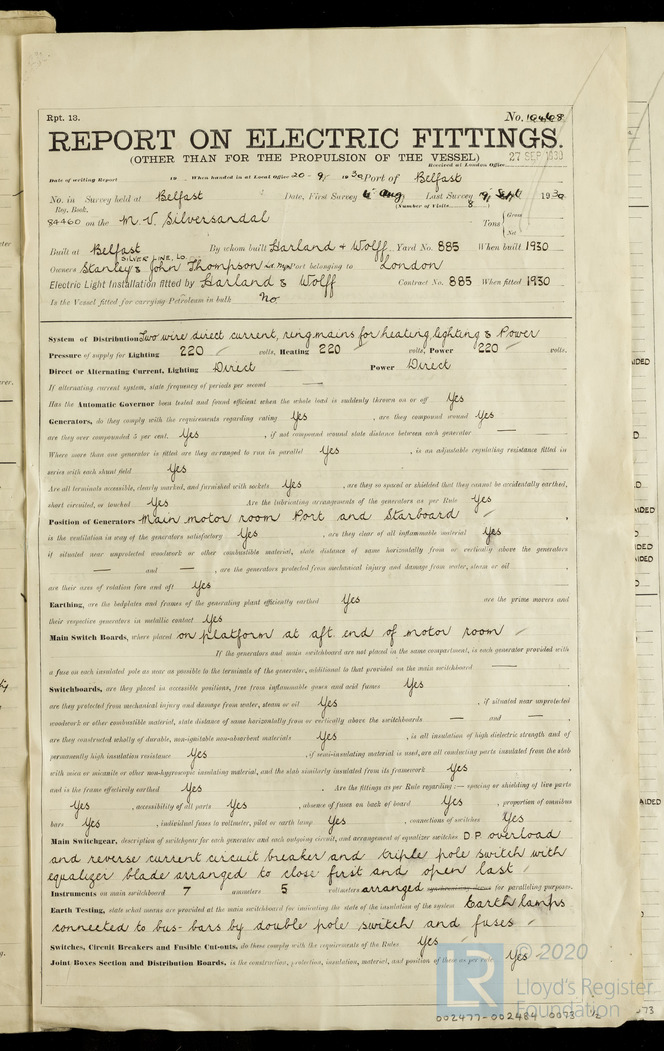 Rpt. 13.
No. 10468
REPORT ON ELECTRIC FITTINGS.
(OTHER THAN FOR THE PROPULSION OF THE VESSEL)
Received at London Office 27 SEP 1930
Date of writing Report 19 When handed in at Local Office 20 - 9 / 1930 Port of Belfast
No. in Survey held at Belfast Date, First Survey Aug Last Survey Sept 1930
Reg. Book. (Number of Visits 8
84460 on the M.V. Silversandal Tons { Gross Net
Built at Belfast By whom built Harland & Wolff Yard No. 885 When built 1930
SILVER LINE, LD.
Owners Stanley & John Thompson Ld. Mgrs Port belonging to London
Electric Light Installation fitted by Harland & Wolff Contract No. 885 When fitted 1930
Is the Vessel fitted for carrying Petroleum in bulk No
System of Distribution Two wire direct current, ring mains for heating, lighting & Power
Pressure of supply for Lighting 220 volts, Heating 220 volts, Power 220 volts.
Direct or Alternating Current, Lighting Direct Power Direct
If alternating current system, state frequency of periods per second —
Has the Automatic Governor been tested and found efficient when the whole load is suddenly thrown on or off Yes
Generators, do they comply with the requirements regarding rating Yes , are they compound wound Yes
are they over compounded 5 per cent. Yes , if not compound wound state distance between each generator —
Where more than one generator is fitted are they arranged to run in parallel Yes , is an adjustable regulating resistance fitted in
series with each shunt field Yes
Are all terminals accessible, clearly marked, and furnished with sockets Yes , are they so spaced or shielded that they cannot be accidentally earthed,
short circuited, or touched Yes Are the lubricating arrangements of the generators as per Rule Yes
Position of Generators Main motor room Port and Starboard ,
is the ventilation in way of the generators satisfactory Yes , are they clear of all inflammable material Yes
if situated near unprotected woodwork or other combustible material, state distance of same horizontally from or vertically above the generators
— and — , are the generators protected from mechanical injury and damage from water, steam or oil
are their axes of rotation fore and aft Yes
Earthing, are the bedplates and frames of the generating plant efficiently earthed Yes are the prime movers and
their respective generators in metallic contact Yes
Main Switch Boards, where placed on platform at aft end of motor room
If the generators and main switchboard are not placed in the same compartment, is each generator provided with
a fuse on each insulated pole as near as possible to the terminals of the generator, additional to that provided on the main switchboard —
Switchboards, are they placed in accessible positions, free from inflammable gases and acid fumes Yes ,
are they protected from mechanical injury and damage from water, steam or oil Yes , if situated near unprotected
woodwork or other combustible material, state distance of same horizontally from or vertically above the switchboards — and — ,
are they constructed wholly of durable, non-ignitable non-absorbent materials Yes , is all insulation of high dielectric strength and of
permanently high insulation resistance Yes , if semi-insulating material is used, are all conducting parts insulated from the slab
with mica or micanite or other non-hygroscopic insulating material, and the slab similarly insulated from its framework Yes ,
and is the frame effectively earthed Yes . Are the fittings as per Rule regarding:— spacing or shielding of live parts
Yes , accessibility of all parts Yes , absence of fuses on back of board Yes , proportion of omnibus
bars Yes , individual fuses to voltmeter, pilot or earth lamp Yes , connections of switches Yes
Main Switchgear, description of switchgear for each generator and each outgoing circuit, and arrangement of equalizer switches D.P. overload
and reverse current circuit breaker and triple pole switch with
equalizer blade arranged to close first and open last
Instruments on main switchboard 7 ammeters 5 voltmeters arranged for paralleling purposes.
Earth Testing, state what means are provided at the main switchboard for indicating the state of the insulation of the system Earth lamps
connected to bus-bars by double pole switch and fuses
Switches, Circuit Breakers and Fusible Cut-outs, do these comply with the requirements of the Rules Yes
Joint Boxes Section and Distribution Boards, is the construction, protection, insulation, material, and position of these as per rule Yes
© 2020
LR
Lloyd's Register
Foundation
002477-002484-0073 1/2